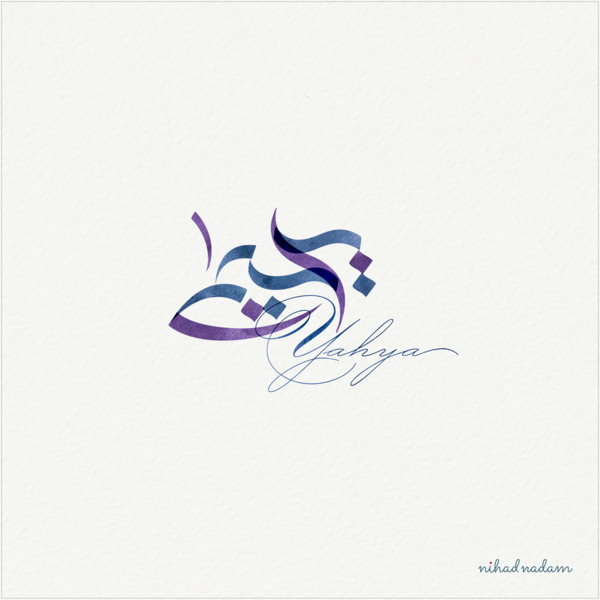 يحيى
Yahya
nihad nadam